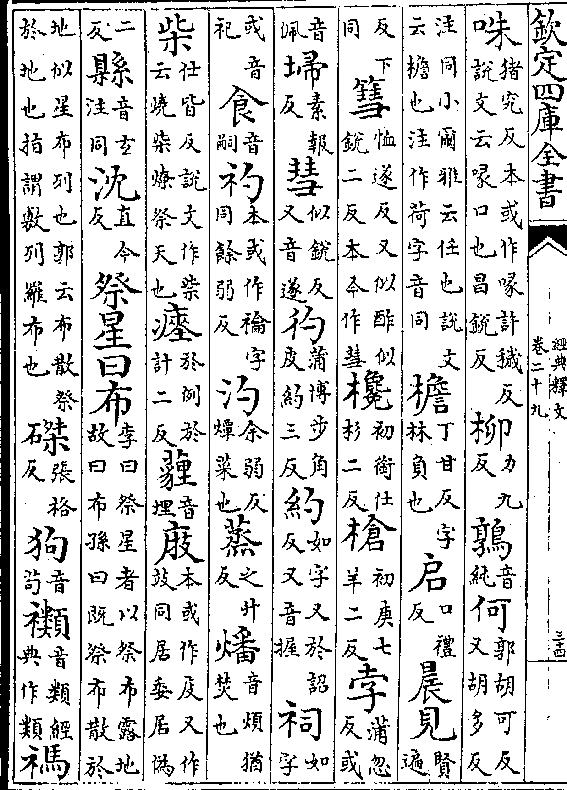 欽定四庫全書
經典釋文
卷二十九
三四
咮猪究反本或作喙許穢反說文云喙口也昌銳反柳力九反鶉音純何郭胡可反又胡多反
注同小爾雅云任也說文云檐也注作荷字音同檐丁甘反字林負也启口禮反晨見賢遍
反下同篲似銳二反本今作彗欃初銜仕杉二反槍初庚七羊二反孛蒲忽反或
音佩埽素報反彗似銳反又音遂彴蒲博步角皮約三反約如字又於詔反又音握祠如字
或音祀食音嗣礿本或作禴字同餘弱反汋余弱反爚菜也蒸之升反燔音煩猶焚也
柴仕皆反說文作祡云燒柴燎祭天也瘞於例於計二反薶音埋庪本或作庋又作攱同居委居偽
二反縣音玄注同沈直今反祭星曰布李曰祭星者以祭布露地故曰布孫曰既祭布散於
地似星布列也郭云布散祭於地也拍謂敷列羅布也磔張格反狗音苟禷音類經典作類禡